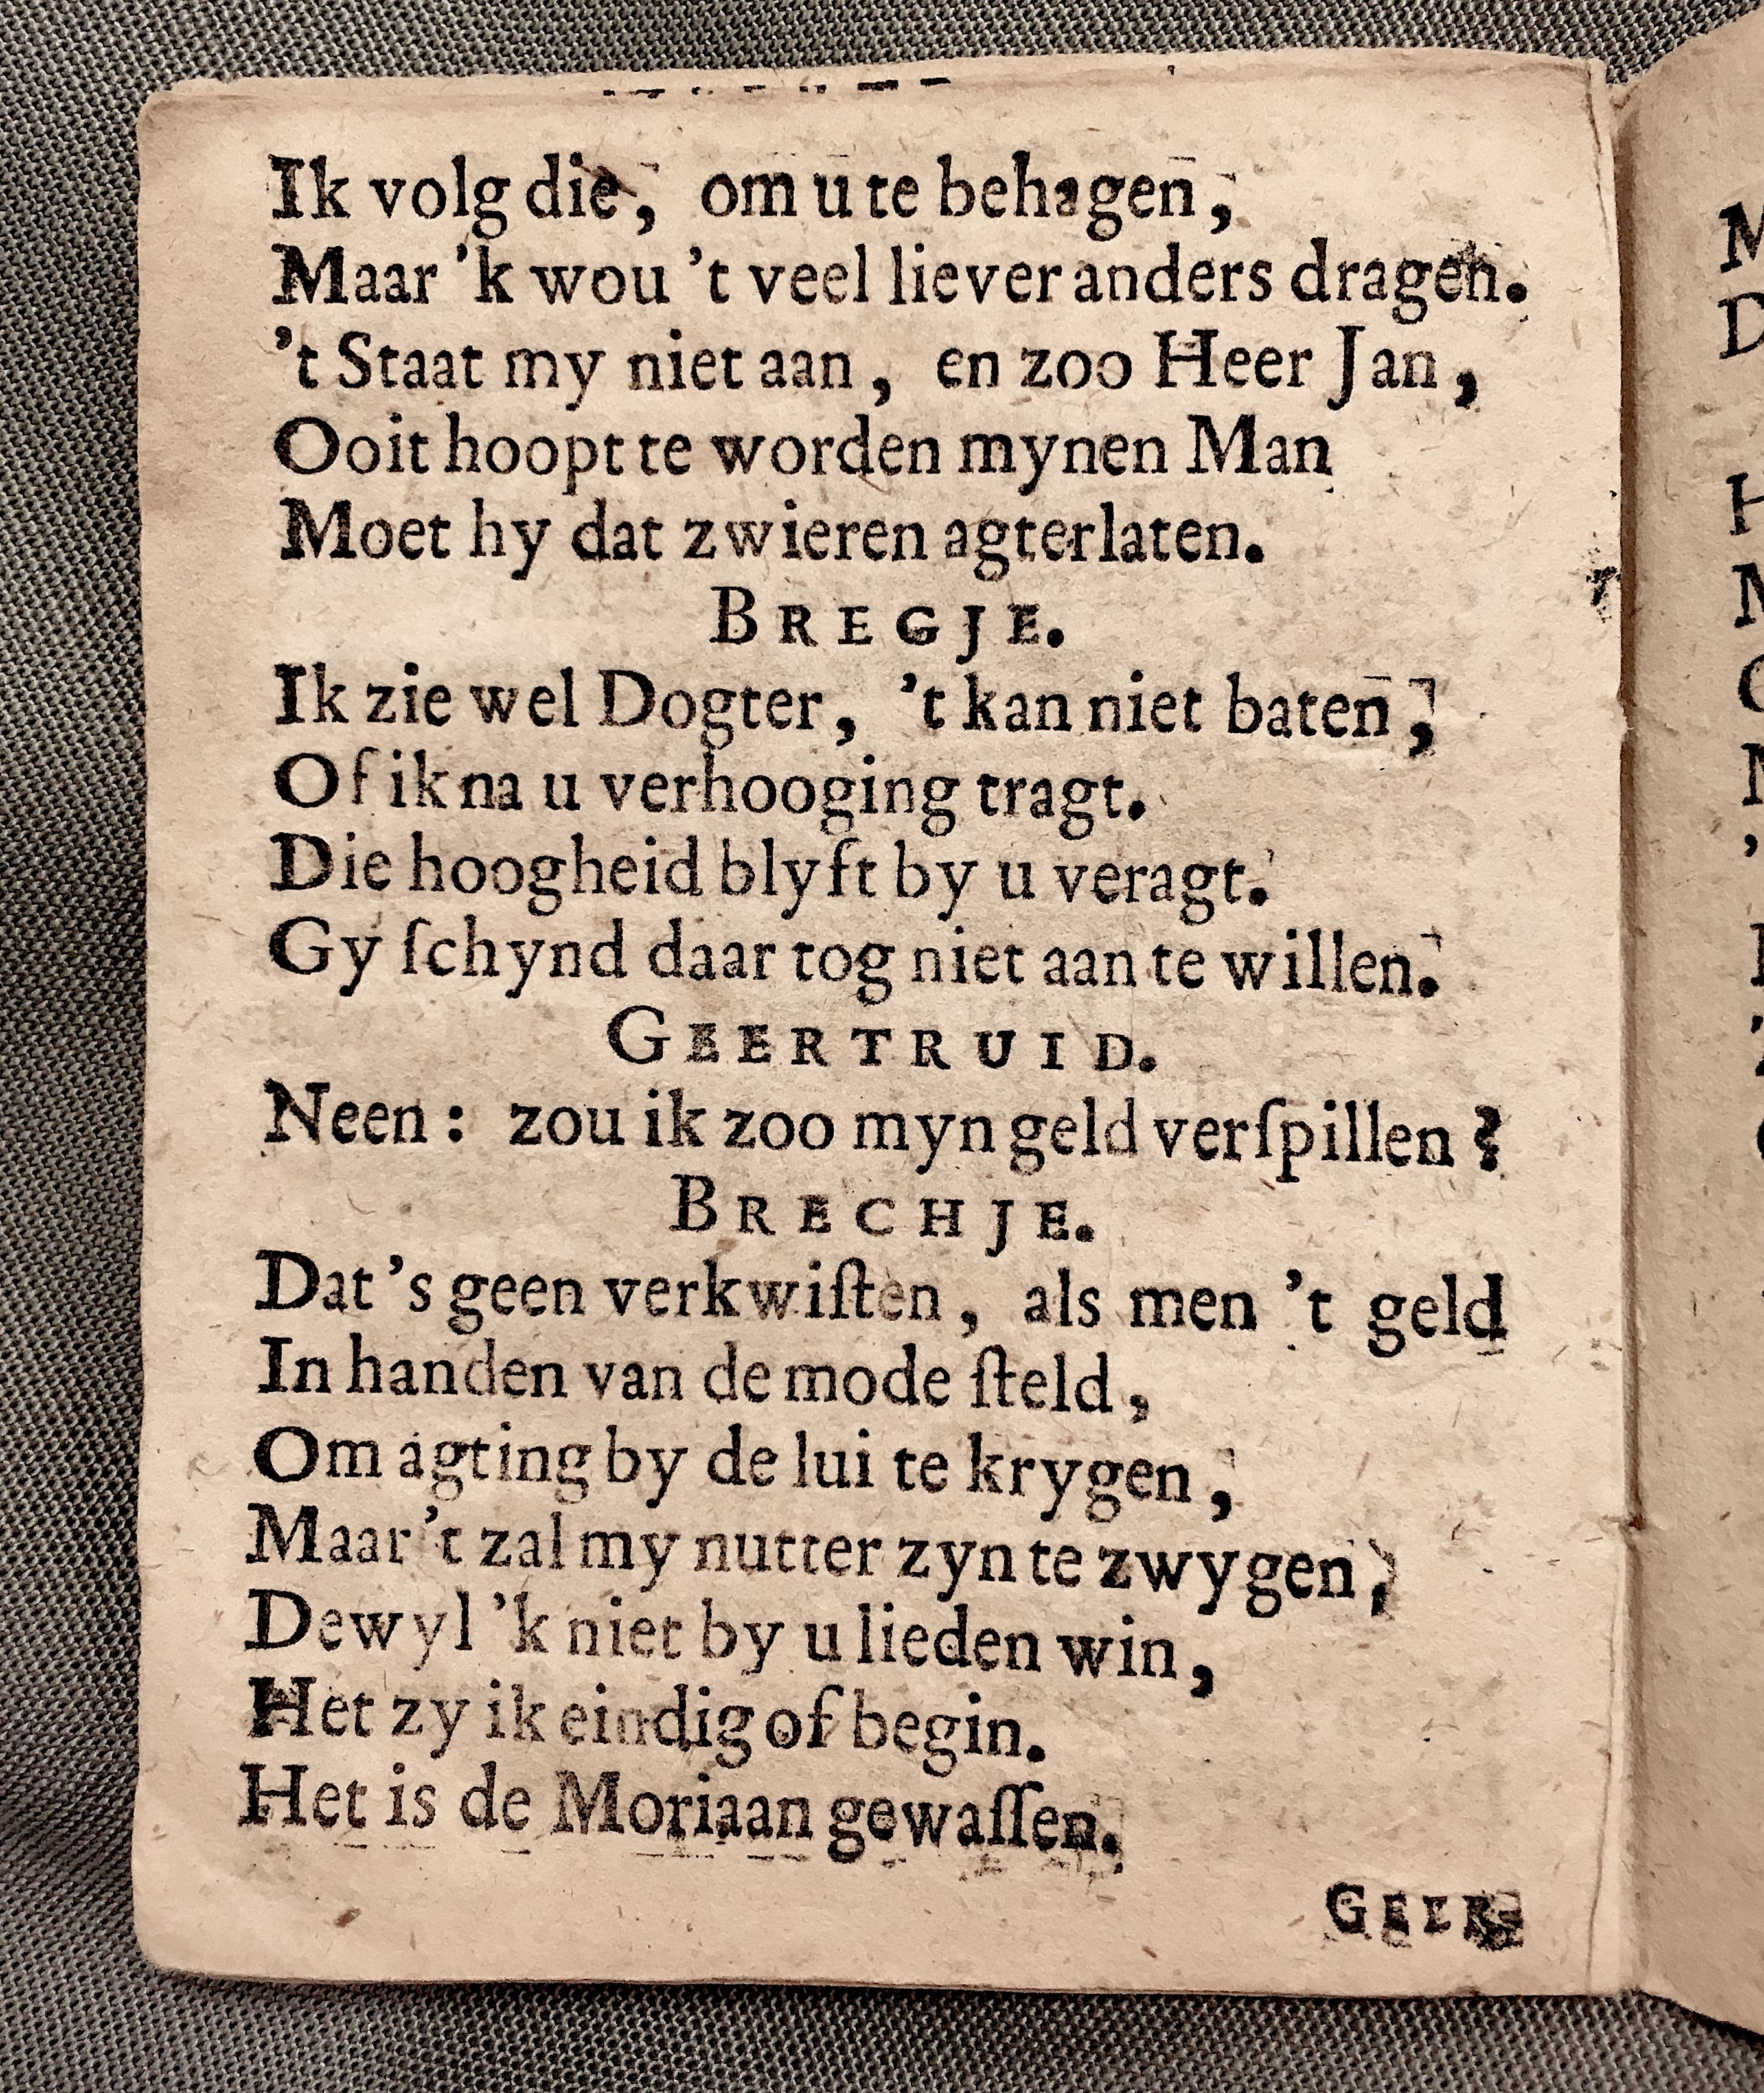 Ik volg die, om u te behagen,
Maar 'k wou 't veel liever anders dragen.
't Staat my niet aan, en zoo Heer Jan,
Ooit hoopt te worden mynen Man
Moet hy dat zwieren agterlaten.
BREGJE.
Ik zie wel Dogter, 't kan niet baten,
Of ik na u verhooging tragt.
Die hoogheid blyft by u veragt.
Gy ſchynd daar tog niet aan te willen.
GEERTRUID.
Neen: zou ik zoo myn geld verſpillen?
BRECHJE.
Dat 's geen verkwiſten, als men 't geld
In handen van de mode ſteld,
Om agting by de lui te krygen,
Maar 't zal my nutter zyn te zwygen,
Dewyl 'k niet by u lieden win,
Het zy ik eindig of begin.
Het is de Moriaan gewaſſen.